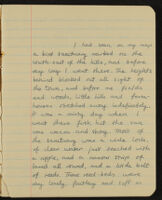 I had seen on my map
a bird sanctuary marked on the
south-east of the hills, and before
very long I went there. The heights
behind blotted out all sight of
the town, and before me fields
and woods, little hills and farm-
houses stretched away indefinitely.
It was a misty day when I
went there first, but the sun
was warm and
the sanctuary was a wide lake,
of clear water just touched with
a ripple, and a narrow strip of
land all round, and a wide belt
of reeds. These reed-beds were
very lovely, feathery and soft as